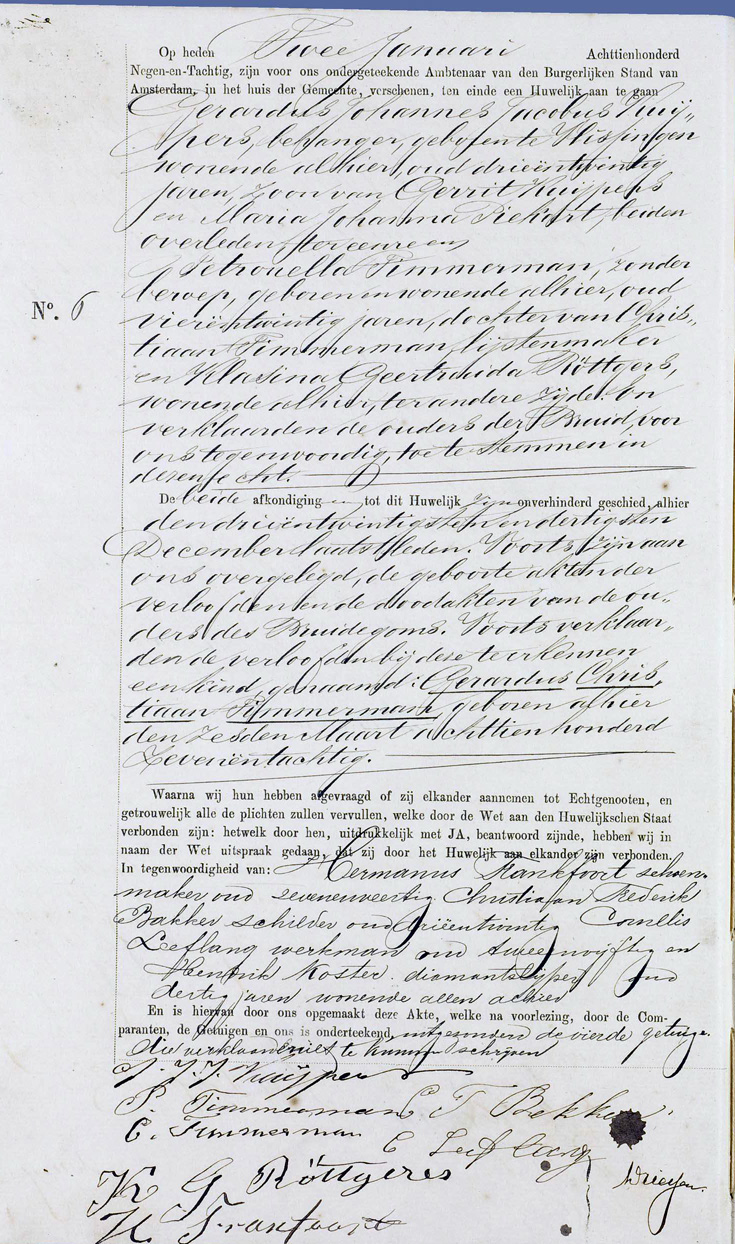 Op heden Twee Januari Achttienhonderd
Negen-en-Tachtig, zijn voor ons ondergeteekende Ambtenaar van den Burgerlijken Stand van
Amsterdam, in het huis der Gemeente, verschenen, ten einde een Huwelijk aan te gaan
Gerardus Johannes Jacobus Kuij„
pers, behanger, geboren te Vlissingen
wonende alhier, oud drieëntwintig
jaren, zoon van Gerrit Kuijpers
en Maria Johanna Piekart, beiden
overleden, ter eenre en
Petronella Timmerman, zonder
No. 6
beroep, geboren en wonende alhier, oud
vierëntwintig jaren, dochter van Chris„
tiaan Timmerman, lijstenmaker
en Klasina Geertruida Röttgers,
wonende alhier, ter andere zijde. En
verklaarden de ouders der Bruid, voor
ons tegenwoordig, toe te stemmen in
dezen echt.
De beide afkondigingen tot dit Huwelijk zijn onverhinderd geschied, alhier
den drieëntwintigsten en dertigsten
December laatstleden. Voorts zijn aan
ons overgelegd, de geboorte akten der
verloofden en de doodakten van de ou„
ders des Bruidegoms. Voorts verklaar„
den de verloofden bij deze te erkennen
een kind, genaamd: Gerardus Chris„
tiaan Timmerman, geboren alhier
den zesden Maart achttienhonderd
Zevenëntachtig.
Waarna wij hun hebben afgevraagd of zij elkander aannemen tot Echtgenooten, en
getrouwelijk alle de plichten zullen vervullen, welke door de Wet aan den Huwelijkschen Staat
verbonden zijn: hetwelk door hen, uitdrukkelijk met JA, beantwoord zijnde, hebben wij in
naam der Wet uitspraak gedaan, dat zij door het Huwelijk aan elkander zijn verbonden.
In tegenwoordigheid van: Hermanus Frankfoort schoen„
maker oud zevenenveertig Christiaan Frederik
Bakker schilder oud drieëentwintig Cornelis
Leeflang werkman oud tweeenvijftig en
Hendrik Koster diamantslijper oud
dertig jaren wonende allen alhier
En is hiervan door ons opgemaakt deze Akte, welke na voorlezing, door de Com-
paranten, de Getuigen en ons is onderteekend, uitgezonderd de vierde getuige
die verklaarde niet te kunnen schrijven
G. J. J. Kuijpers
P. Timmerman C F Bakker
C. Timmerman C Leeflang
K G Röttgers
H Frankfoort